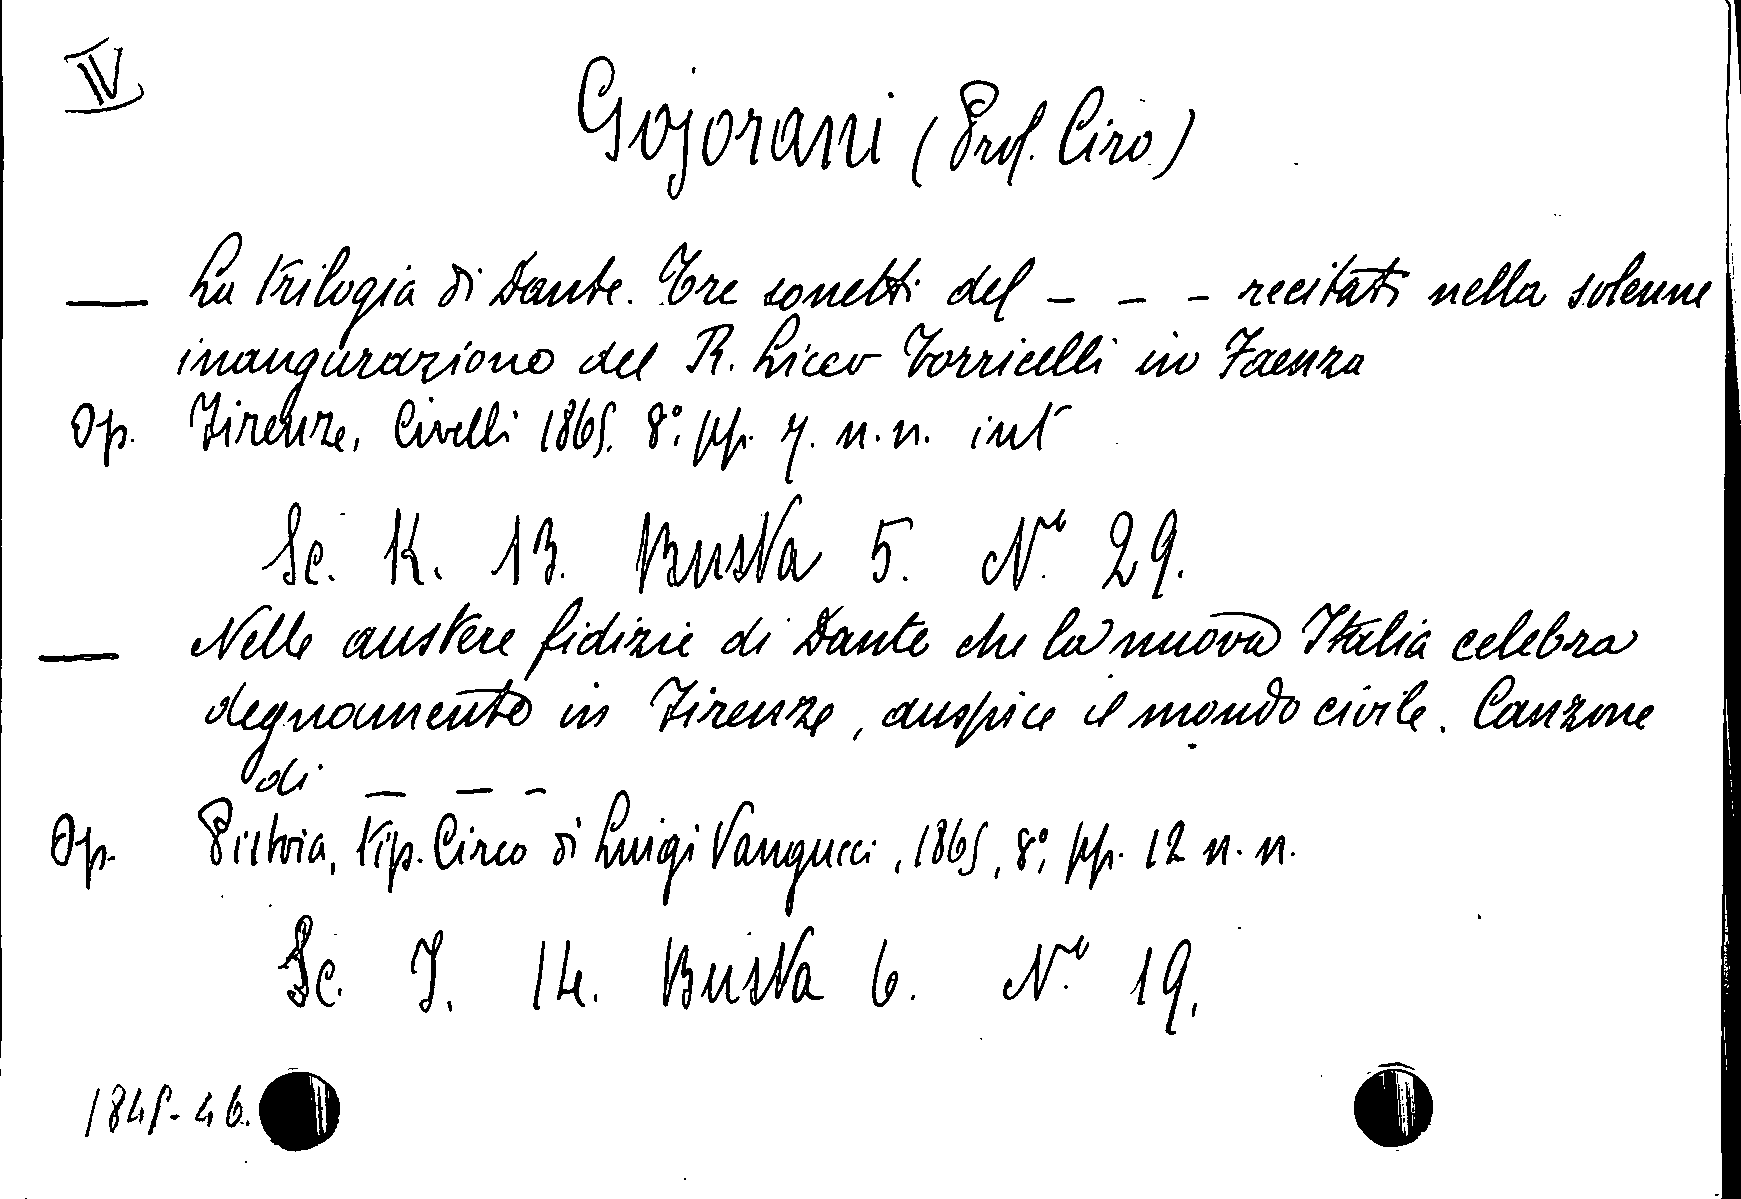 IV
Gojorani (Prof. Ciro)
— La trilogia di Dante. Tre sonetti del - - - recitati nella solenne
inaugurazione del R. Liceo Torricelli in Faenza
Op. Firenze, Civelli 1865. 8°. pp. 7. n.n. int
Sc. K. 13. Busta 5. N° 29.
— Nelle austere fidizie di Dante che la nuova Italia celebra
degnamente in Firenze, auspice il mondo civile. Canzone
di — — -
Op. Pistoia, tip. Cireo di Luigi Vangucci, 1865, 8°, pp. 12 n.n.
Sc. J. 14. Busta 6. N° 19.
1845-46.